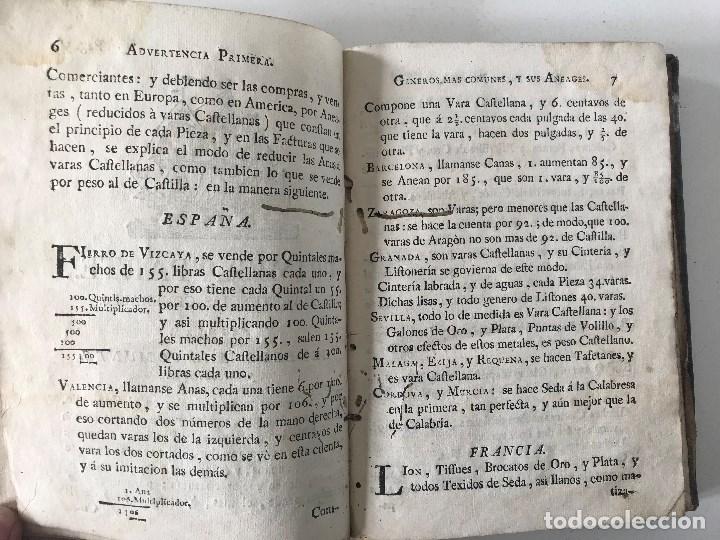 6 ADVERTENCIA PRIMERA.
Comerciantes: y debiendo ser las compras, y ven-
tas, tanto en Europa, como en America, por Anea-
ges (reducidos à varas Castellanas) que constan en
el principio de cada Pieza, y en las Facturas que se
hacen, se explica el modo de reducir las Anas à
varas Castellanas, como tambien lo que se vende
por peso al de Castilla: en la manera siguiente.
ESPAÑA.
FIERRO DE VIZCAYA, se vende por Quintales ma-
chos de 155. libras Castellanas cada uno, y por
eso tiene cada Quintal un 55.
por 100. de aumento al de Castilla;
y asi multiplicando 100. Quinta-
les machos por 155., salen 155.
Quintales Castellanos de á 100.
libras cada uno.
100. Quintls. machos.
155. Multiplicador.
500
500
100
155|00
VALENCIA, llamanse Anas, cada una tiene 6. por 100.
de aumento, y se multiplican por 106., y por
eso cortando dos números de la mano derecha,
quedan varas los de la izquierda, y centavos de
vara los dos cortados, como se vé en esta cuenta,
y á su imitacion las demás.
1. Ana
106. Multiplicador,
1|06
Com-
GENEROS MAS COMUNES, Y SUS ANEAGES. 7
Compone una Vara Castellana, y 6. centavos de
otra, que á 2½. centavos cada pulgada de las 40.
que tiene la vara, hacen dos pulgadas, y ⅖. de
otra.
BARCELONA, llamanse Canas, 1. aumentan 85., y
se Anean por 185., que son 1. vara, y 85/100 de
otra.
ZARAGOZA, son Varas; pero menores que las Castella-
nas: se hace la cuenta por 92.; de modo, que 100.
varas de Aragòn no son mas de 92. de Castilla.
GRANADA, son varas Castellanas, y su Cinteria, y
Listoneria se govierna de este modo.
Cinteria labrada, y de aguas, cada Pieza 34. varas.
Dichas lisas, y todo genero de Listones 40. varas.
SEVILLA, todo lo de medida es Vara Castellana: y los
Galones de Oro, y Plata, Puntas de Volillo, y
otros efectos de estos metales, es peso Castellano.
MALAGA, EZIJA, y REQUENA, se hacen Tafetanes, y
es vara Castellana.
CORDOVA, y MURCIA: se hace Seda á la Calabresa
en la primera, tan perfecta, y aún mejor que la
de Calabria.
FRANCIA.
LION, Tissues, Brocatos de Oro, y Plata, y
todos Texidos de Seda, asi llanos, como ma-
tiza-
todocoleccion
todocoleccion.net